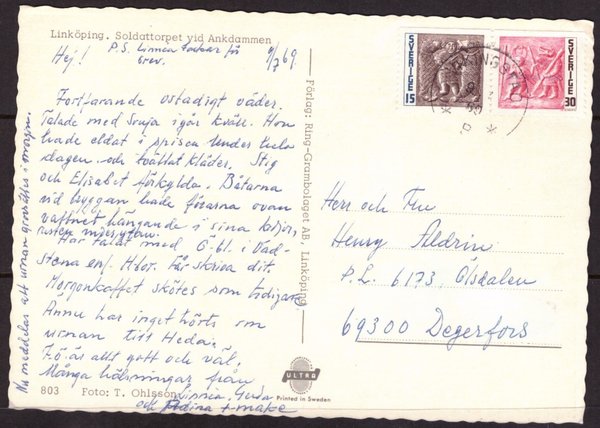 Linköping. Soldattorpet vid Ankdammen
P.S. Linnea tackar för
brev.
Hej!
9/7 69.
Fortfarande ostadigt väder.
Talade med Sonja igår kväll. Hon
hade eldat i spisen under hela
dagen och tvättat kläder. Stig
och Elisabet förkylda. Båtarna
vid bryggan hade förarna ovan
vattnet hängande i sina köjor,
Har talat med Ö-bl. i Vad-
stena enl. Får skriva dit.
Morgonkaffet skötes som tidigare
Ännu har inget hörts om
urnan till Heda.
F.ö. är allt gott och väl.
Många hälsningar från
Linnea, Gerda
och + make
Nu meddelas att urnan gravsättes i morgon.
803 Foto: T. Ohlsson
Förlag: Ring-Grambolaget AB, Linköping
ULTRA
Printed in Sweden
SVERIGE 15
SVERIGE 30
Herr och Fru
Henry Aldrin
P.L. 6173, Ölsdalen
69300 Degerfors